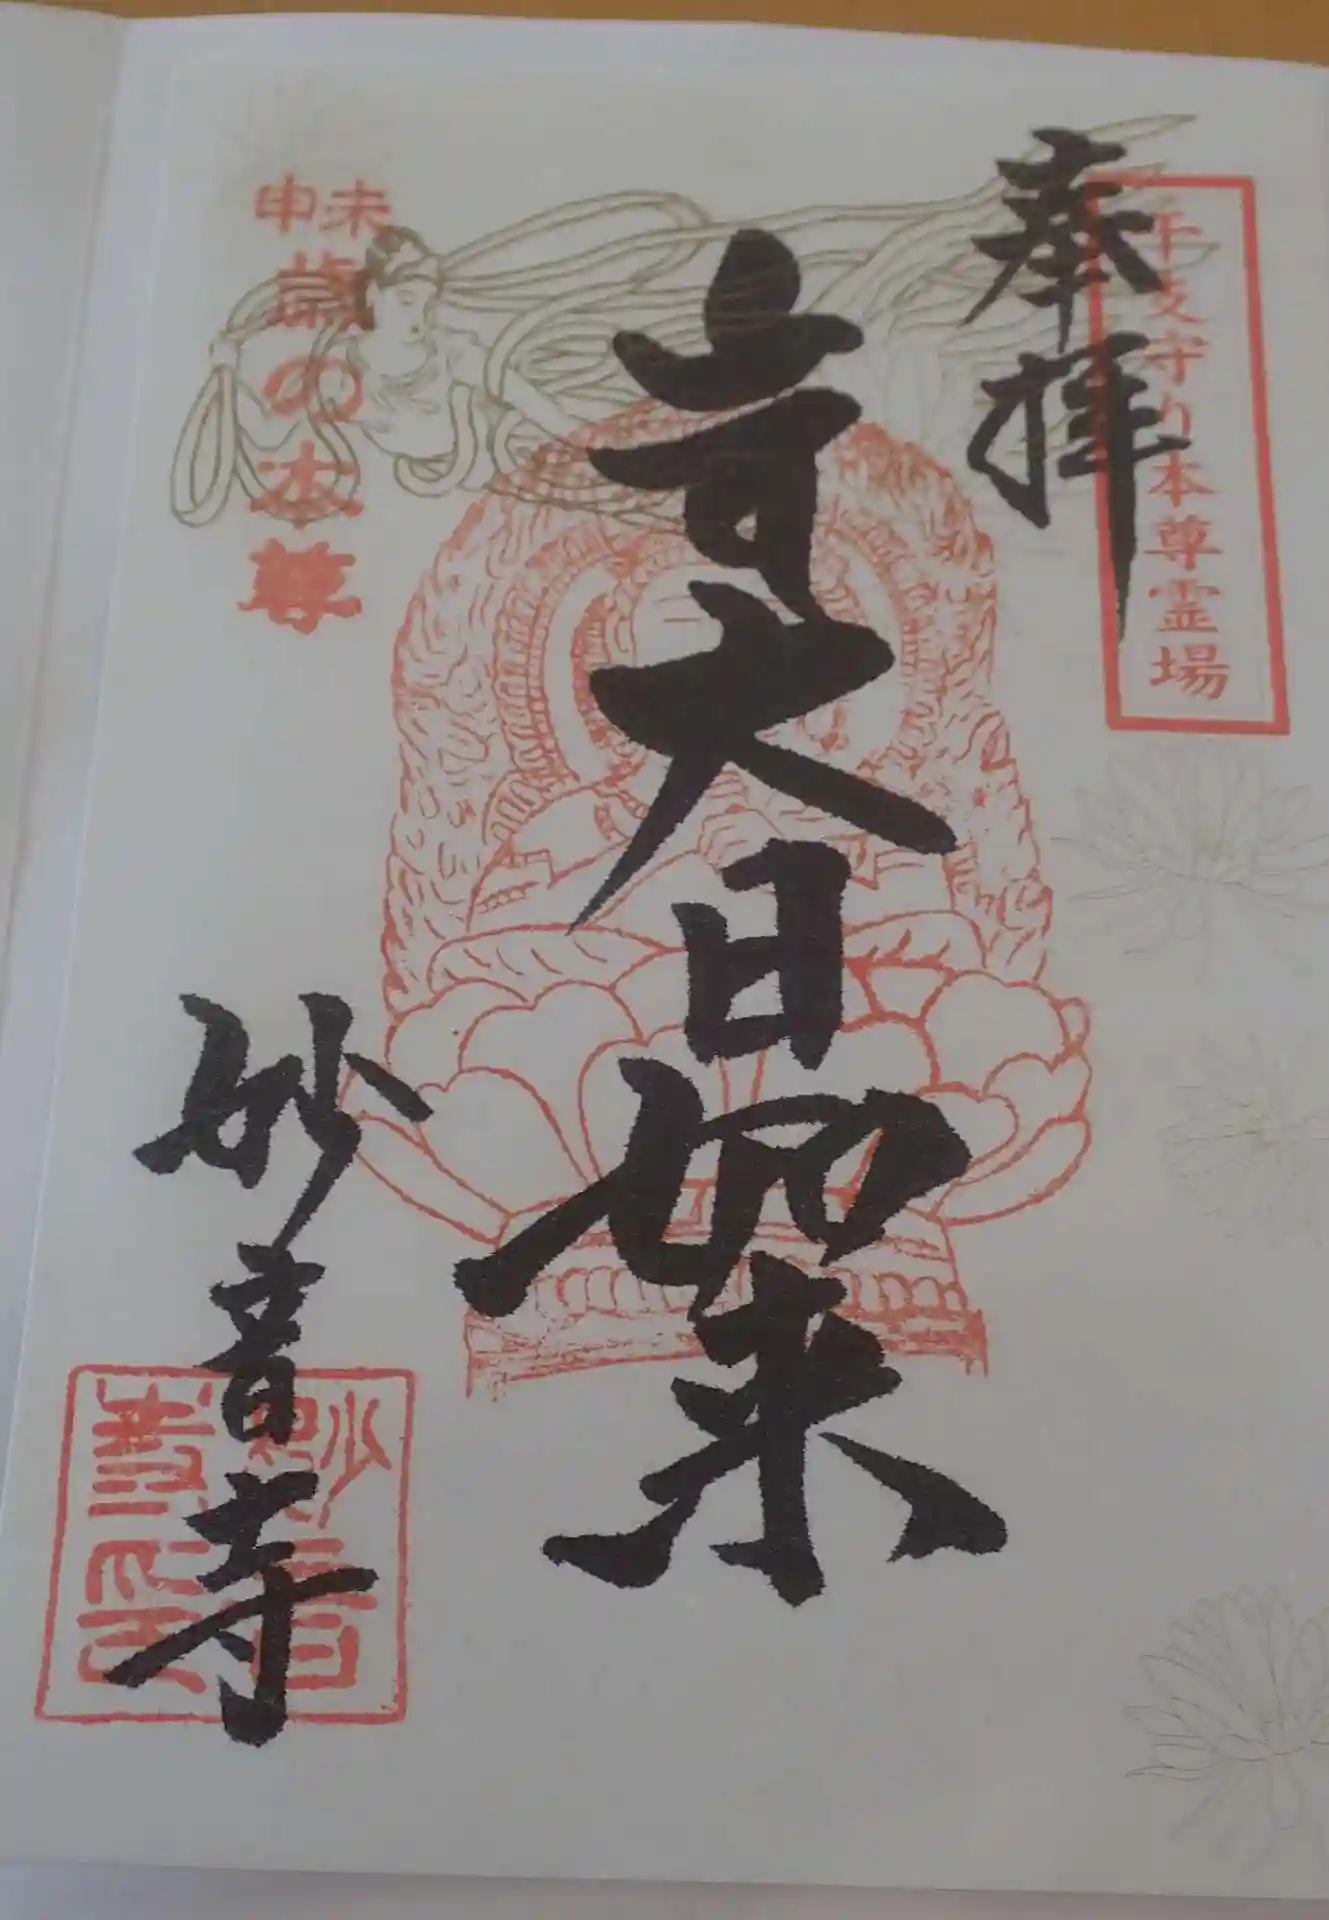 奉拝
干支守り本尊霊場
大日如来
未申歳の本尊
妙音寺
妙音寺印